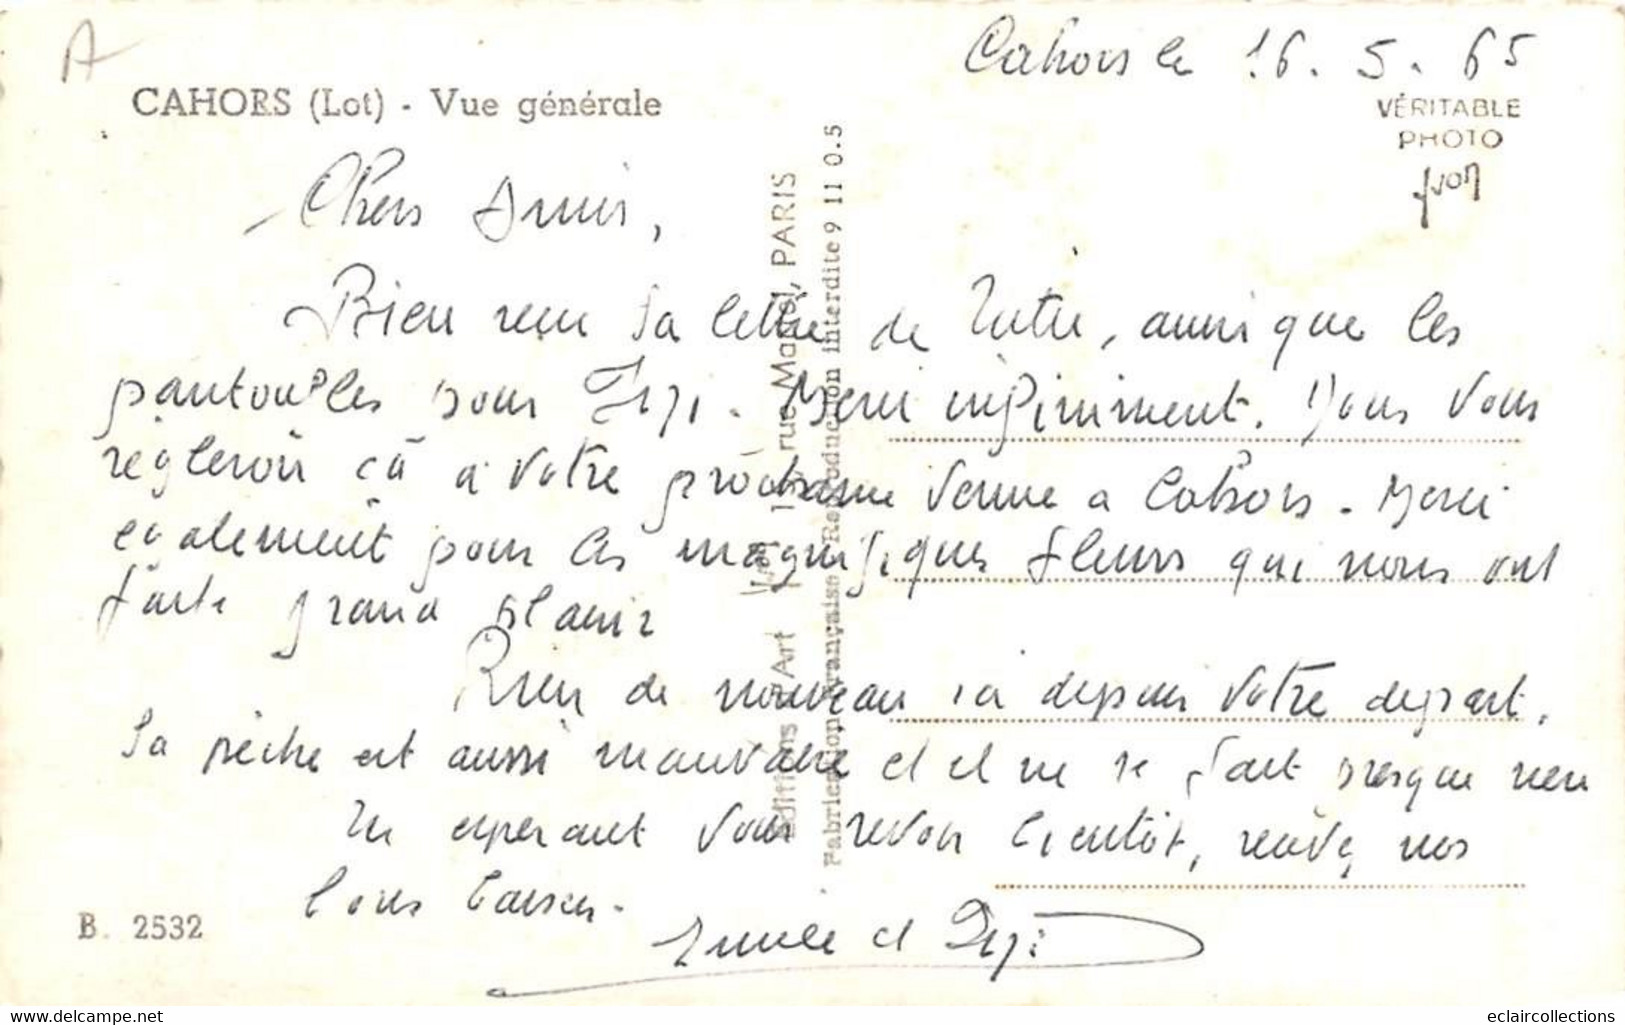 A
Cahors le 16.5.65
CAHORS (Lot) - Vue générale
VÉRITABLE
PHOTO
yvon
Chers Amis,
Bien reçu la lettre de Titi, ainsi que les
pantoufles pour Zizi. Merci infiniment. Nous vous
règleron ça à votre prochaine venue a Cahors. Merci
egalement pour les magnifiques fleurs qui nous ont
fait grand plaisir
Rien de nouveau ici depuis votre depart.
La pèche est aussi mauvaise et il ne se fait presque rien
En esperant vous revoir bientôt, recevez nos
bons baisers.
et
B. 2532
Editions d'Art yvon, 15, rue Martel, PARIS
Fabrication Française Reproduction interdite 9 11 0.5
www.delcampe.net
eclaircollections